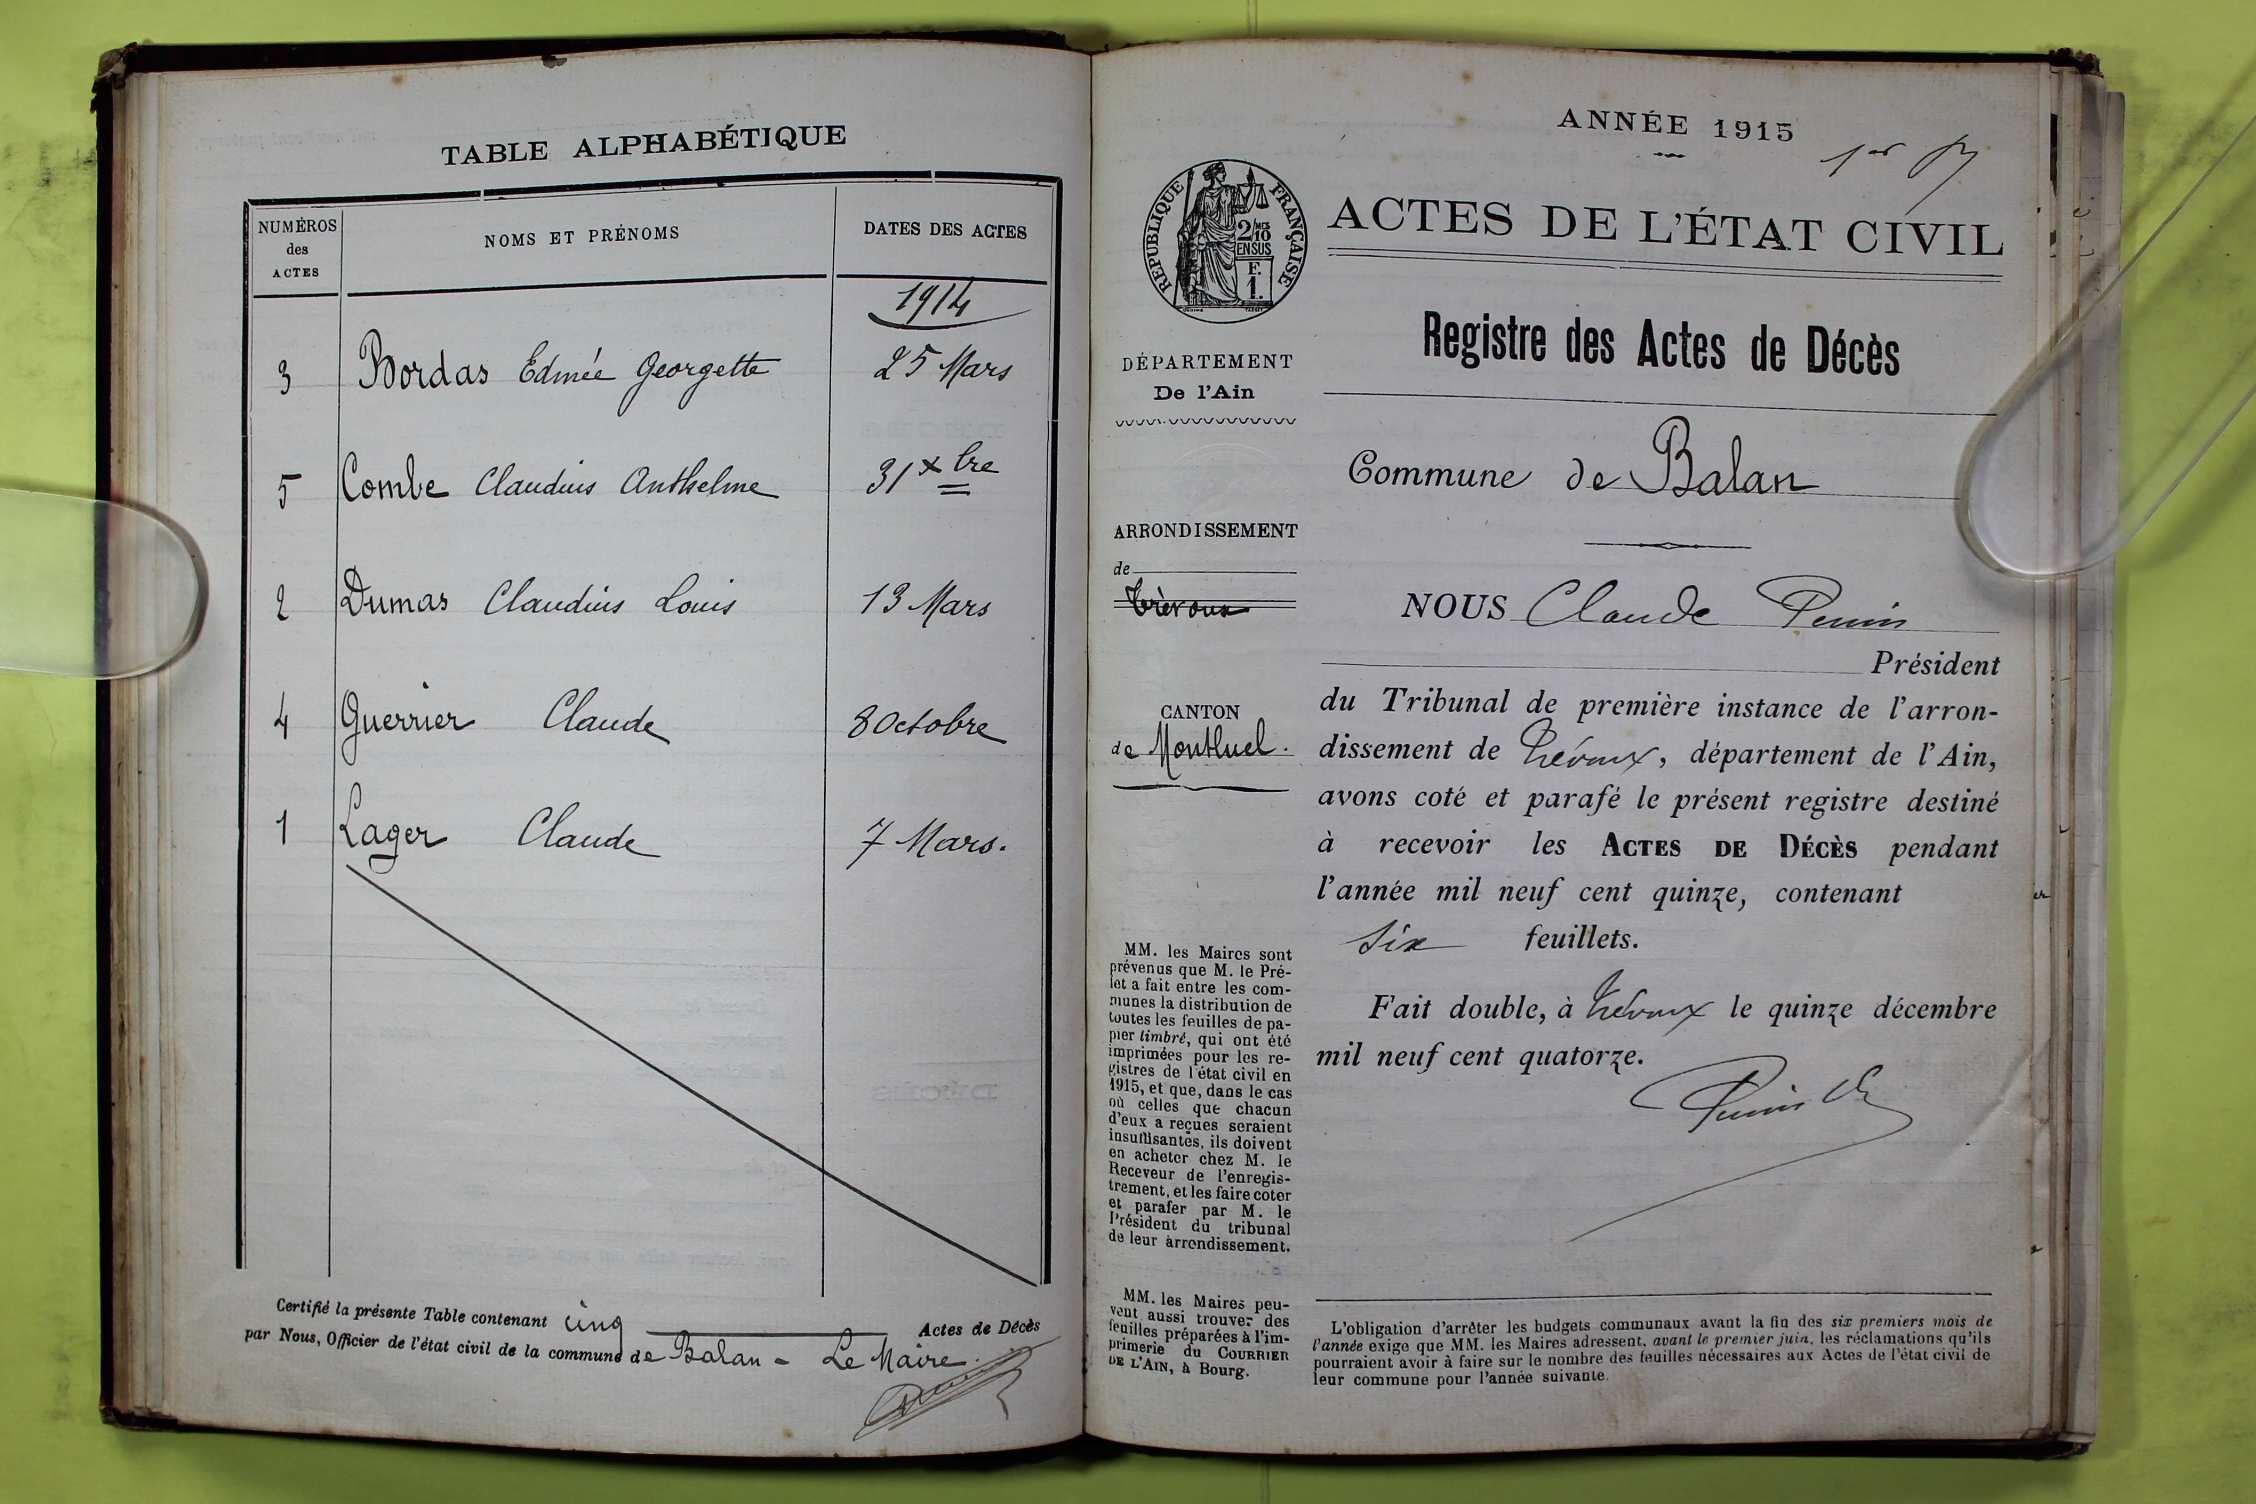 TABLE ALPHABÉTIQUE
NUMÉROS des ACTES
NOMS ET PRÉNOMS
DATES DES ACTES
1914
3 Bordas Edmée Georgette 25 Mars
5 Combe Claudius Anthelme 31 xbre
2 Dumas Claudius Louis 13 Mars
4 Guerrier Claude 8 Octobre
1 Lager Claude 7 Mars.
Certifié la présente Table contenant cinq Actes de Décès
par Nous, Officier de l'état civil de la commune de Balan - Le Maire.
ANNÉE 1915
RÉPUBLIQUE FRANÇAISE
2/10 MES
EN SUS
F.
1.
ACTES DE L'ÉTAT CIVIL
Registre des Actes de Décès
DÉPARTEMENT
De l'Ain
Commune de Balan
ARRONDISSEMENT
de
Trévoux
CANTON
de Montluel.
NOUS Claude Perrin
Président
du Tribunal de première instance de l'arron-
dissement de Trévoux, département de l'Ain,
avons coté et parafé le présent registre destiné
à recevoir les ACTES DE DÉCÈS pendant
l'année mil neuf cent quinze, contenant
six feuillets.
Fait double, à Trévoux le quinze décembre
mil neuf cent quatorze.
Perrin
MM. les Maires sont
prévenus que M. le Pré-
fet a fait entre les com-
munes la distribution de
toutes les feuilles de pa-
pier timbré, qui ont été
imprimées pour les re-
gistres de l'état civil en
1915, et que, dans le cas
où celles que chacun
d'eux a reçues seraient
insuffisantes, ils doivent
en acheter chez M. le
Receveur de l'enregis-
trement, et les faire coter
et parafer par M. le
Président du tribunal
de leur arrondissement.
MM. les Maires peu-
vent aussi trouver des
feuilles préparées à l'im-
primerie du COURRIER
DE L'AIN, à Bourg.
L'obligation d'arrêter les budgets communaux avant la fin des six premiers mois de
l'année exige que MM. les Maires adressent, avant le premier juin, les réclamations qu'ils
pourraient avoir à faire sur le nombre des feuilles nécessaires aux Actes de l'état civil de
leur commune pour l'année suivante.